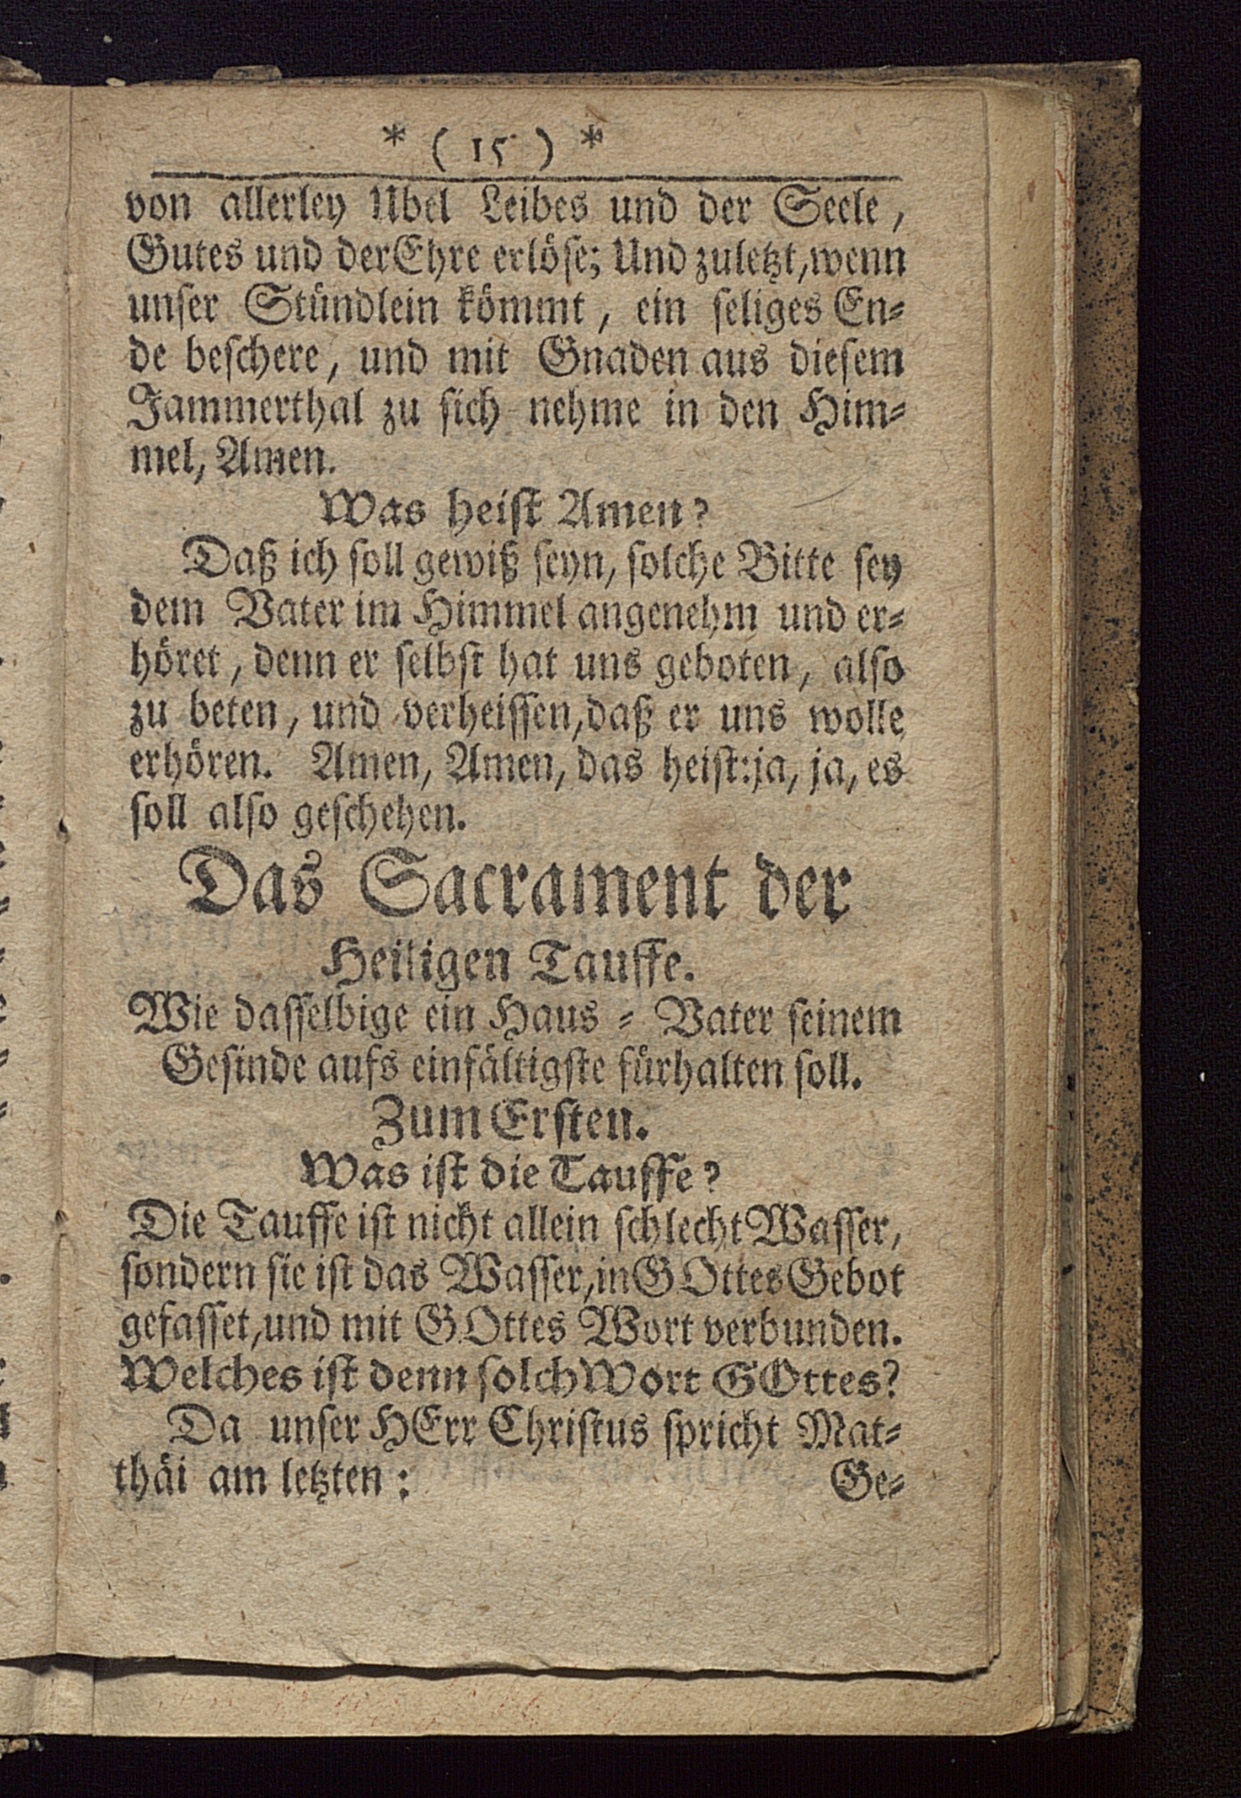 * ( 15 ) *
von allerley Ubel Leibes und der Seele,
Gutes und der Ehre erlöse; Und zuletzt, wenn
unser Stündlein kömmt, ein seliges En-
de beschere, und mit Gnaden aus diesem
Jammerthal zu sich nehme in den Him-
mel, Amen.
Was heist Amen?
Daß ich soll gewiß seyn, solche Bitte sey
dem Vater im Himmel angenehm und er-
höret, denn er selbst hat uns geboten, also
zu beten, und verheissen, daß er uns wolle
erhören. Amen, Amen, das heist: ja, ja, es
soll also geschehen.
Das Sacrament der
Heiligen Tauffe.
Wie dasselbige ein Haus - Vater seinem
Gesinde aufs einfältigste fürhalten soll.
Zum Ersten.
Was ist die Tauffe?
Die Tauffe ist nicht allein schlecht Wasser,
sondern sie ist das Wasser, in GOttes Gebot
gefasset, und mit GOttes Wort verbunden.
Welches ist denn solch Wort GOttes?
Da unser HErr Christus spricht Mat-
thäi am letzten:
Ge-